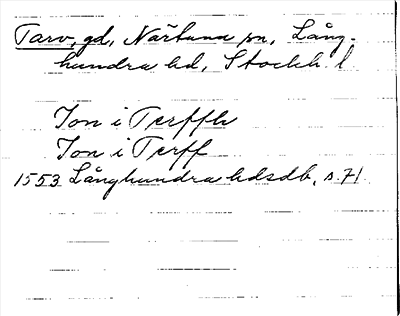 Tarv, gd, Närtuna sn, Lång-
hundra hd, Stockh. l.
Jon i Terffh
Jon i Terff
1553 Långhundra hdsdb, s. 71